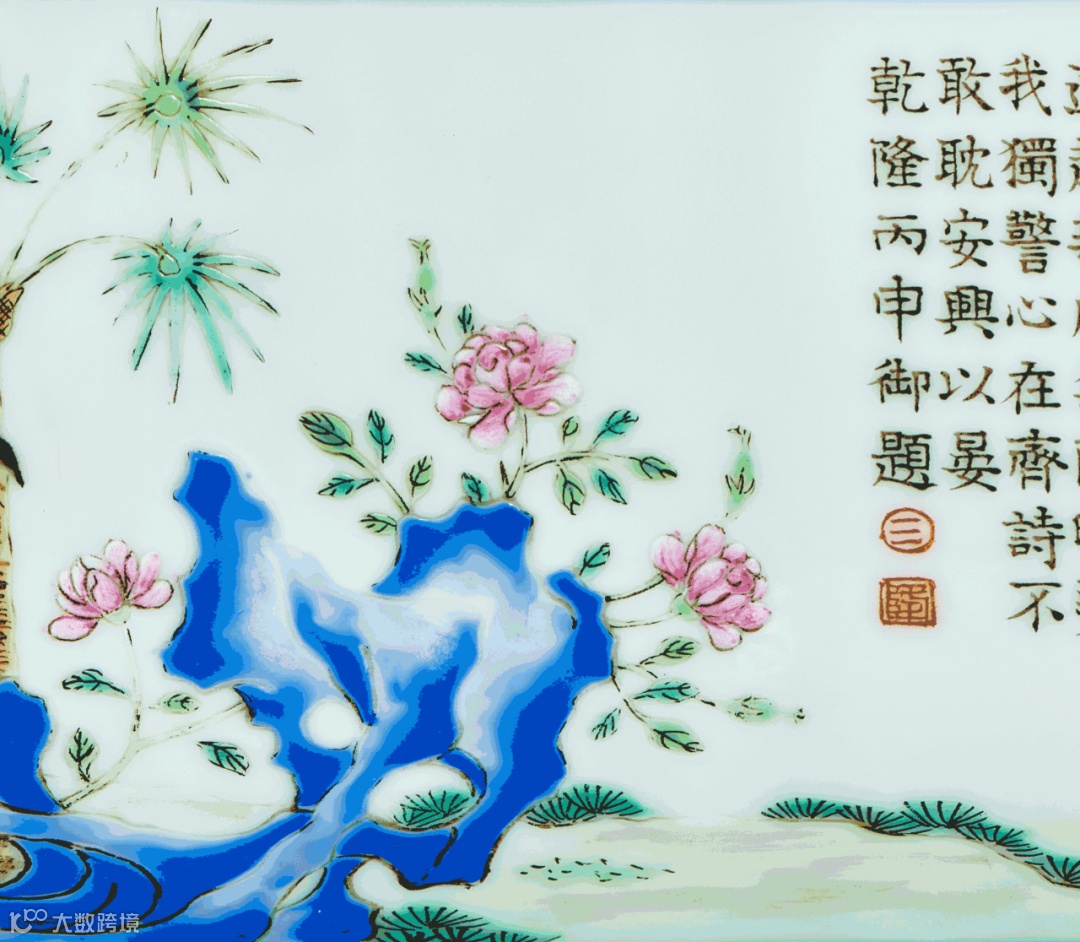 我獨警心在齊詩不
敢耽安興以晏
乾隆丙申御題
三
隆
大数跨境